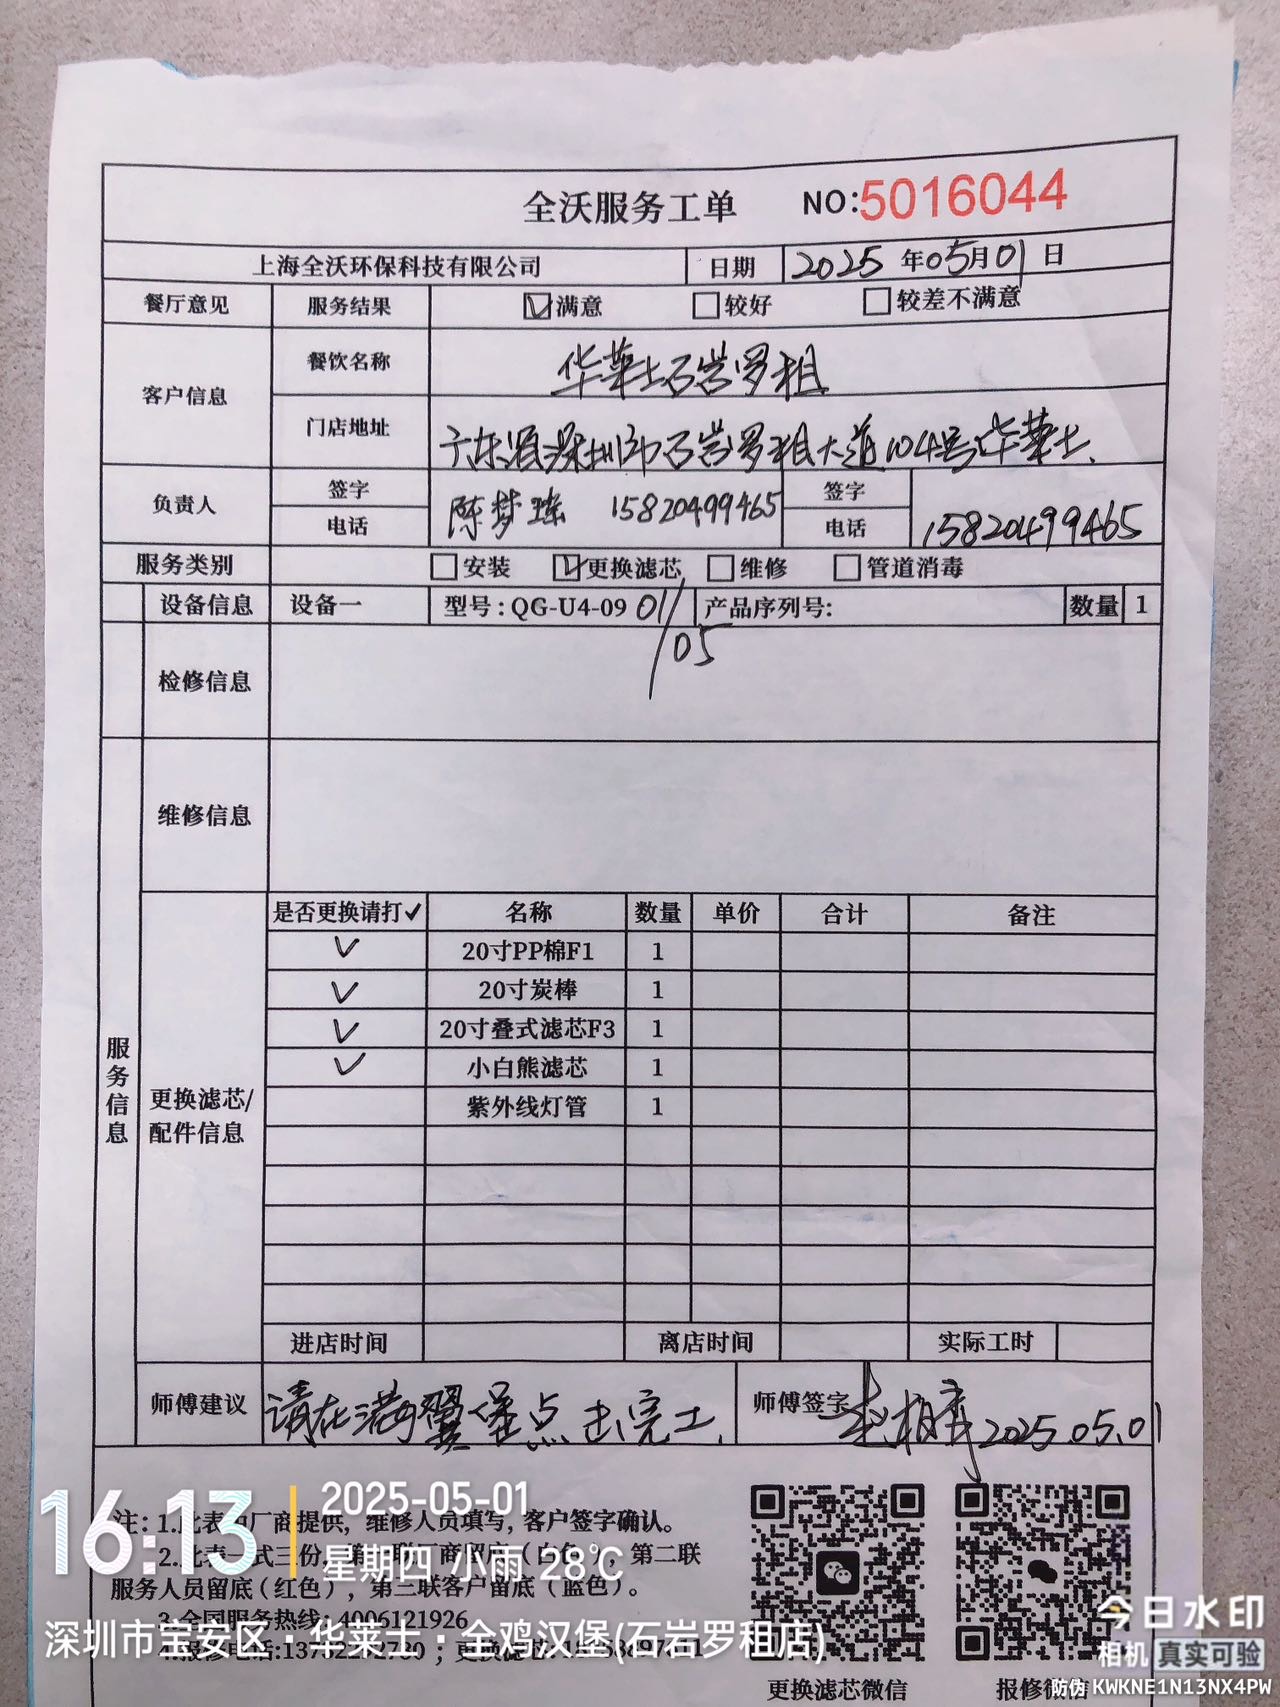 全沃服务工单 NO:5016044
上海全沃环保科技有限公司 日期 2025年05月01日
餐厅意见 服务结果 ☑满意 □较好 □较差不满意
客户信息 餐饮名称 华莱士石岩罗租
门店地址 广东省深圳市石岩罗租大道104号华莱士、
负责人 签字 陈梦瑶 15820499465 签字
电话 电话 15820499465
服务类别 □安装 ☑更换滤芯 □维修 □管道消毒
设备信息 设备一 型号:QG-U4-09 01/05 产品序列号: 数量 1
检修信息
维修信息
服务信息
更换滤芯/配件信息
是否更换请打✓ 名称 数量 单价 合计 备注
✓ 20寸PP棉F1 1
✓ 20寸炭棒 1
✓ 20寸叠式滤芯F3 1
✓ 小白熊滤芯 1
紫外线灯管 1
进店时间 离店时间 实际工时
师傅建议 请在满翼堡点击完工. 师傅签字 2025.05.01
注: 1.此表由厂商提供, 维修人员填写, 客户签字确认。
2.此表一式三份, 第一联厂商留底(白色), 第二联
服务人员留底(红色), 第三联客户留底(蓝色)。
3.全国服务热线: 4006121926
4.报修电话: ; 更换滤芯
更换滤芯微信 报修微信
16:13 2025-05-01
星期四 小雨 28℃
深圳市宝安区·华莱士·全鸡汉堡(石岩罗租店)
今日水印
相机 真实可验
防伪 KWKNE1N13NX4PW